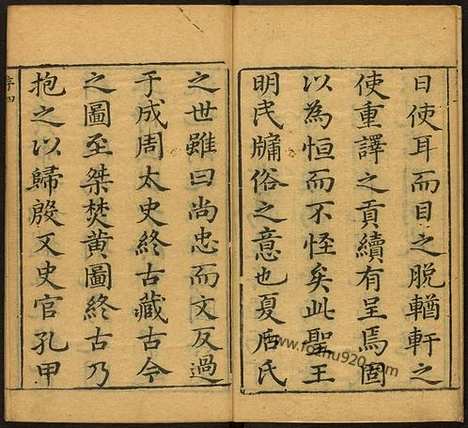 日使耳而目之脱輶軒之
使重譯之貢續有呈焉固
以為恒而不怪矣此聖王
明民牖俗之意也夏后氏
之世雖曰尚忠而文反過
于成周太史終古藏古今
之圖至桀焚黃圖終古乃
抱之以歸殷又史官孔甲
序四